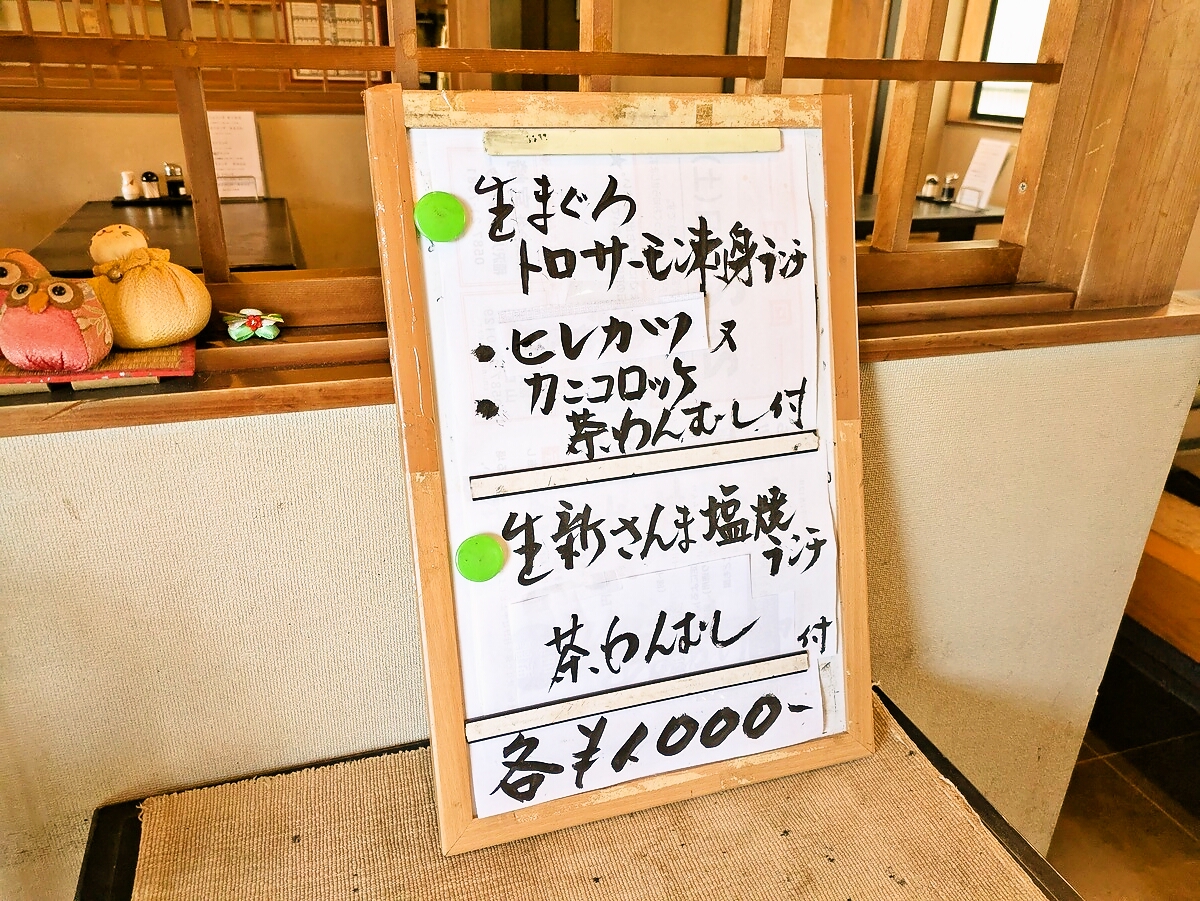 生まぐろ
トロサーモン刺身ランチ
・ヒレカツ 又
・カニコロッケ
茶わんむし付
生新さんま塩焼
ランチ
茶わんむし 付
各¥1000-